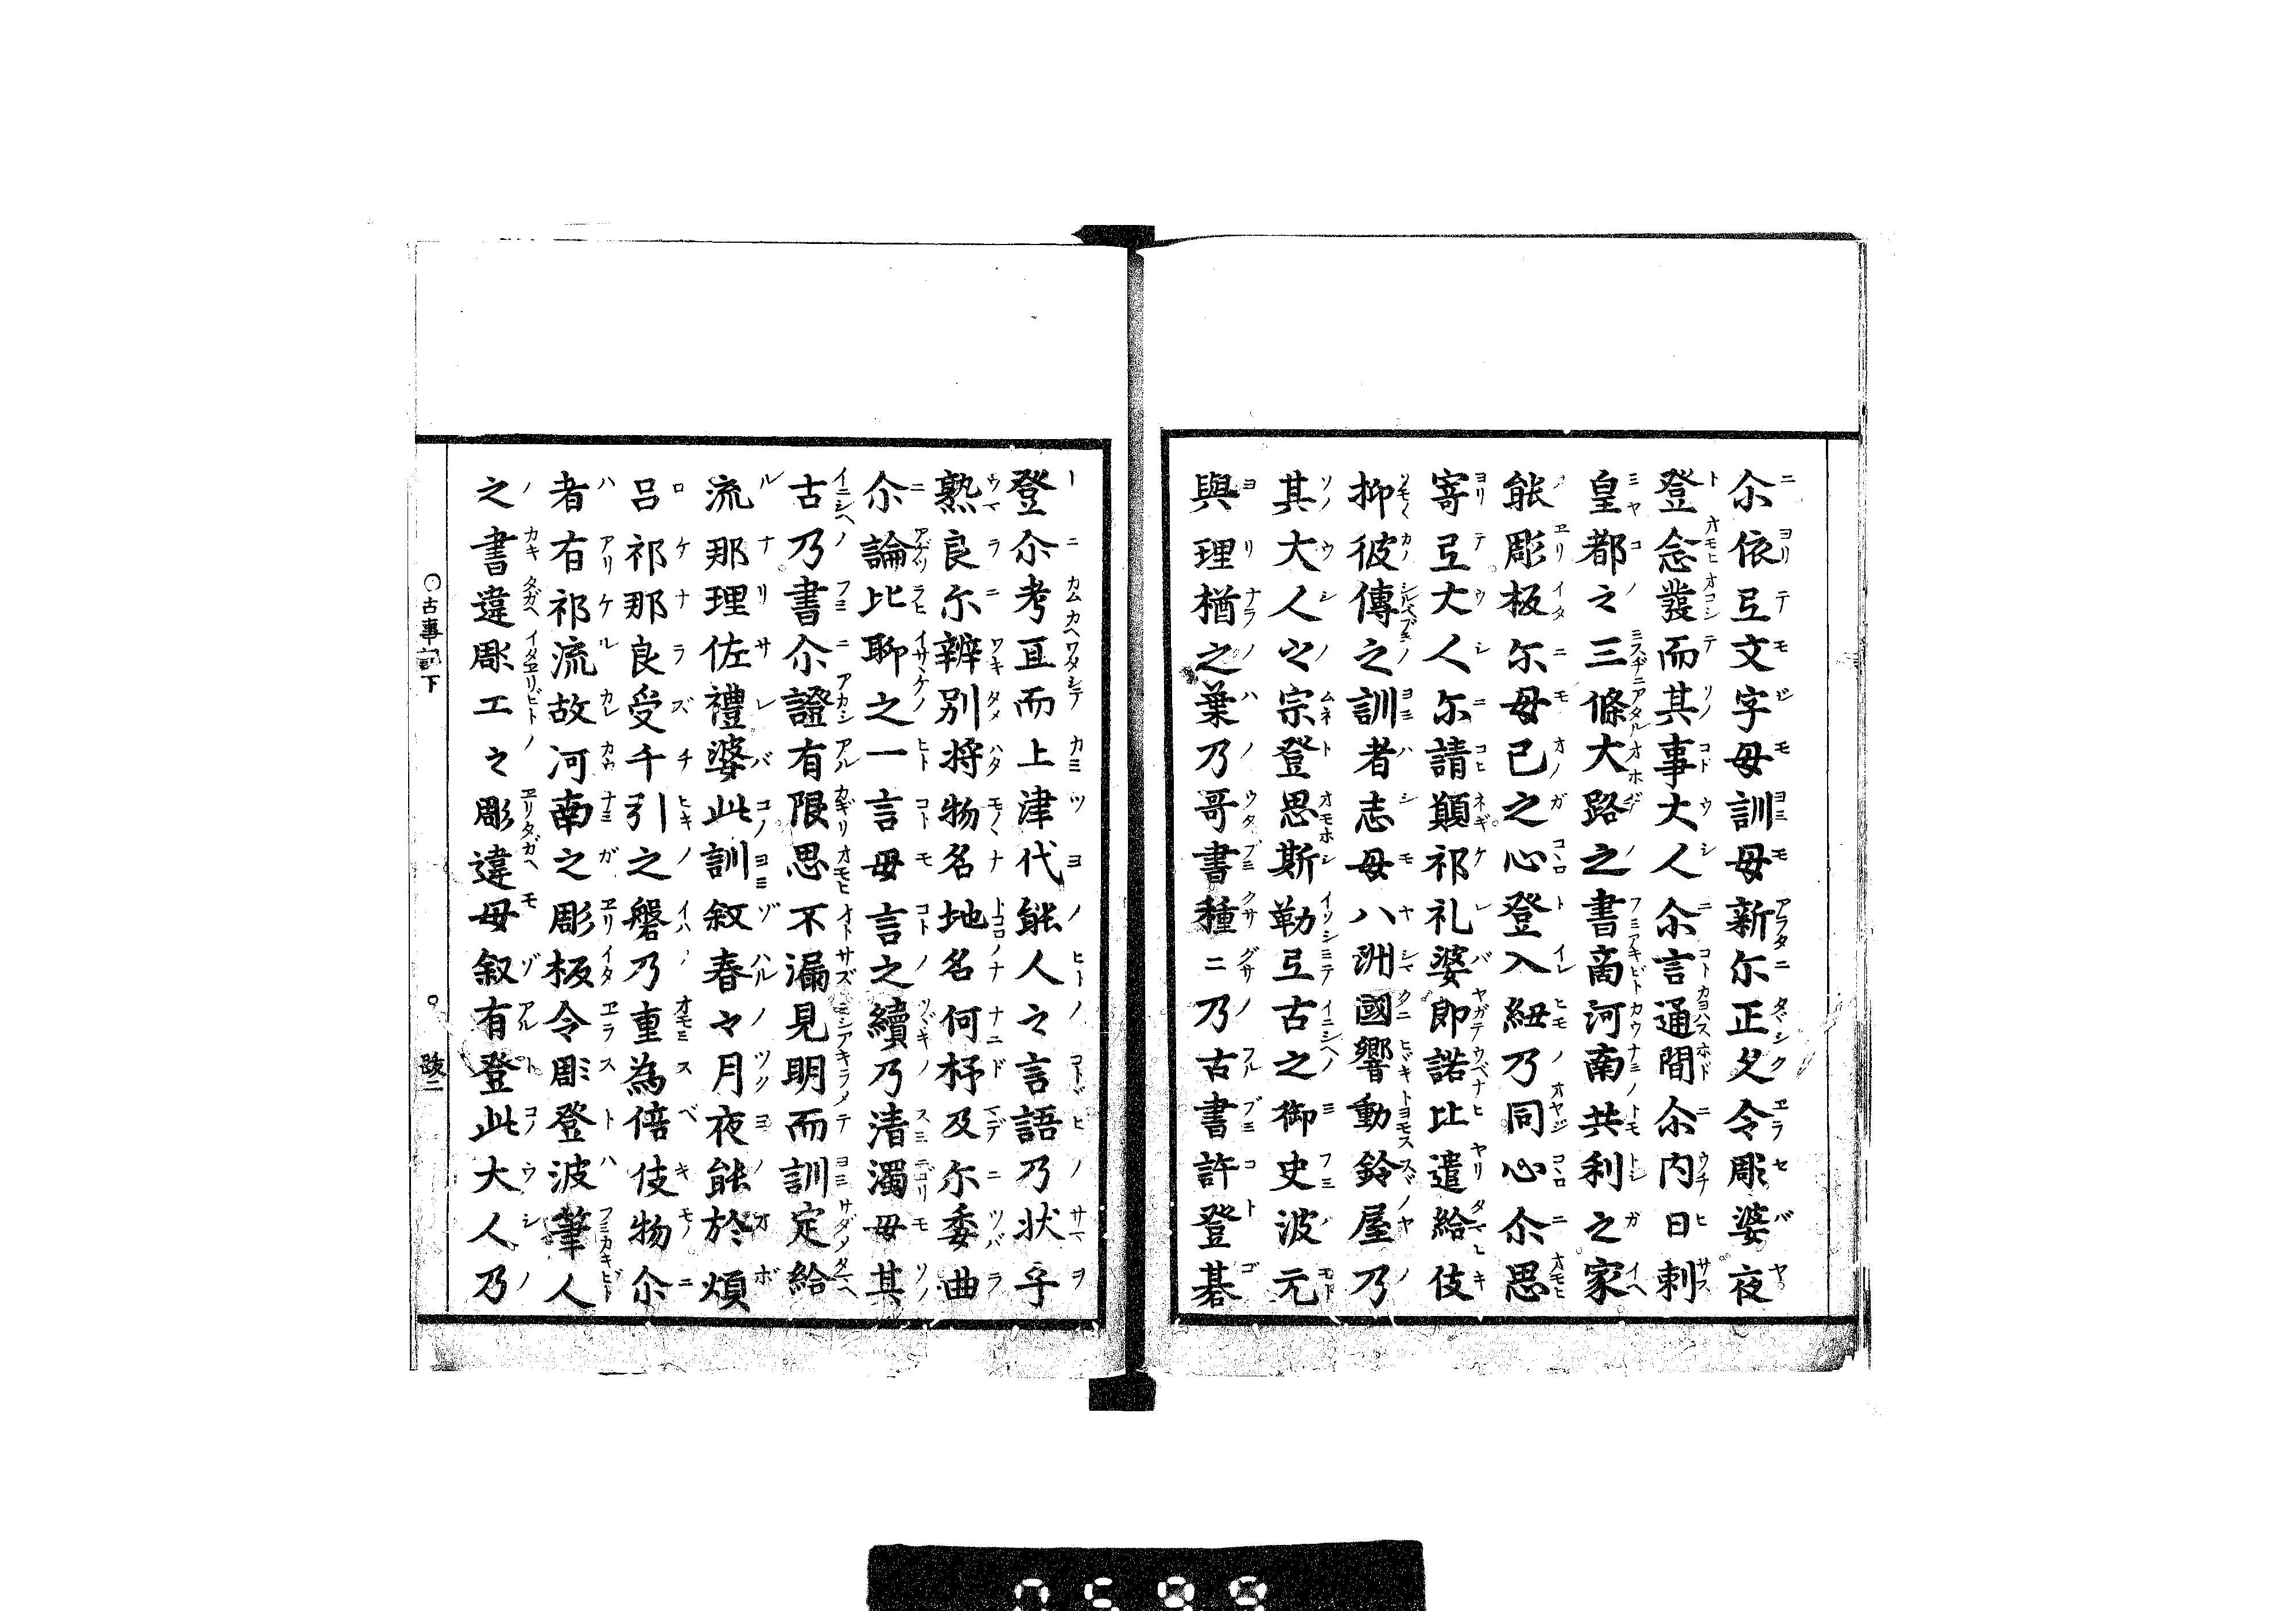 尒依弖文字毋訓毋新尓正攵令彫婆夜
登念發而其事大人尒言通間尒内日刺
皇都之三條大路之書商河南共利之家
能彫板尓毋己之心登入紐乃同心尒思
寄弖大人尓請顚祁礼婆即諾比遣給伎
抑彼傳之訓者志毋八洲國響動鈴屋乃
其大人之宗登思斯勤弖古之御史波元
與理楢之葉乃哥書種ニ乃古書許登碁
登尒考亘而上津代能人之言語乃状乎
熟良尓辨別将物名地名何杼及尓委曲
尒論比聊之一言毋言之續乃清濁毋其
古乃書尒證有限思不漏見明而訓定給
流那理佐禮婆此訓叙春々月夜能於煩
呂祁那良受千引之磐乃重為倍伎物尒
者有祁流故河南之彫板令彫登波筆人
之書違彫工之彫違毋叙有登此大人乃
○古事記下
○ 跋二